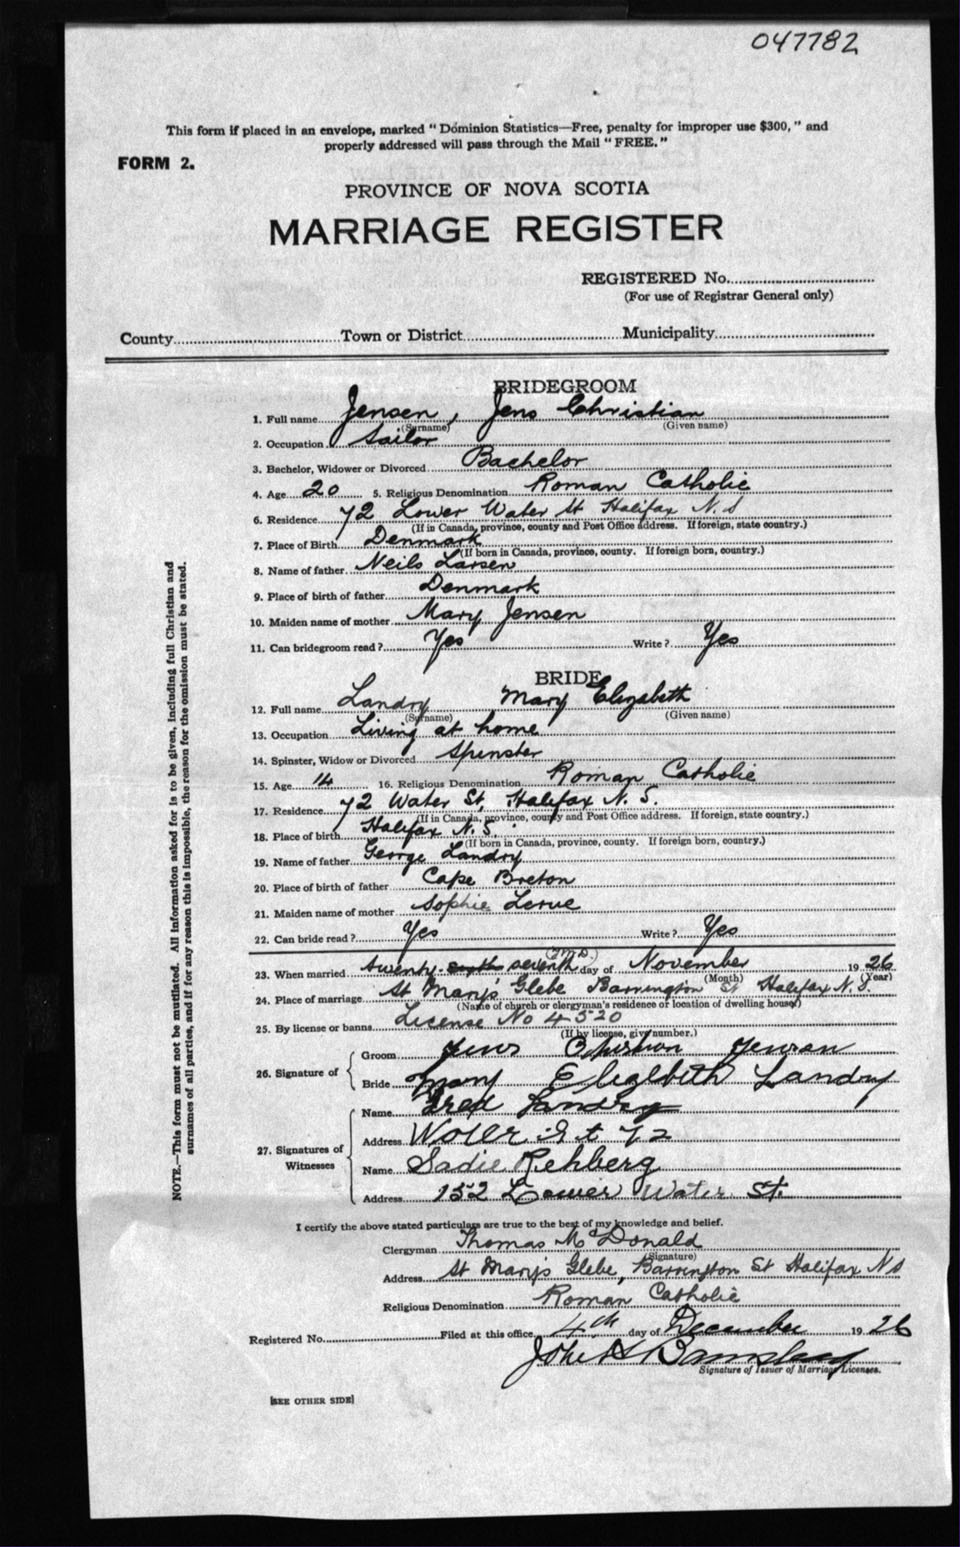 047782
This form if placed in an envelope, marked " Dominion Statistics—Free, penalty for improper use $300, " and
properly addressed will pass through the Mail " FREE. "
FORM 2.
PROVINCE OF NOVA SCOTIA
MARRIAGE REGISTER
REGISTERED No.
(For use of Registrar General only)
County Town or District Municipality
BRIDEGROOM
1. Full name Jensen, Jens Christian
(Surname) (Given name)
2. Occupation Sailor
3. Bachelor, Widower or Divorced Bachelor
4. Age 20 5. Religious Denomination Roman Catholic
6. Residence 72 Lower Water St Halifax N.S
(If in Canada, province, county and Post Office address. If foreign, state country.)
7. Place of Birth Denmark
(If born in Canada, province, county. If foreign born, country.)
8. Name of father Neils Larsen
9. Place of birth of father Denmark
10. Maiden name of mother Mary Jensen
11. Can bridegroom read? Yes Write? Yes
BRIDE
12. Full name Landry Mary Elizabeth
(Surname) (Given name)
13. Occupation Living at home
14. Spinster, Widow or Divorced Spinster
15. Age 14 16. Religious Denomination Roman Catholic
17. Residence 72 Water St, Halifax N.S.
(If in Canada, province, county and Post Office address. If foreign, state country.)
18. Place of birth Halifax N.S.
(If born in Canada, province, county. If foreign born, country.)
19. Name of father George Landry
20. Place of birth of father Cape Breton
21. Maiden name of mother Sophie
22. Can bride read? Yes Write? Yes
23. When married twenty-sixth seventh day of November 1926
(Month) (Year)
24. Place of marriage St Mary's Glebe Barrington St Halifax N.S.
(Name of church or clergyman's residence or location of dwelling house)
25. By license or banns License No 4520
(If by license, give number.)
26. Signature of
Groom Jens Christian Jensen
Bride Mary Elizelbeth Landry
27. Signatures of Witnesses
Name Fred Landry
Address Woller St 72
Name Sadie Rehberg
Address 152 Lower Water St.
I certify the above stated particulars are true to the best of my knowledge and belief.
Clergyman Thomas McDonald
(Signature)
Address St Mary's Glebe, Barrington St Halifax NS
Religious Denomination Roman Catholic
Registered No. Filed at this office 4th day of December 1926
John
Signature of Issuer of Marriage Licenses.
[SEE OTHER SIDE]
NOTE.—This form must not be mutilated. All information asked for is to be given, including full Christian and
surnames of all parties, and if for any reason this is impossible, the reason for the omission must be stated.